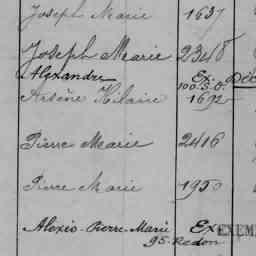 Joseph Marie 1637
Joseph Marie 2348
Alexandre Ex
Arsène Hilaire 1692
Pierre Marie 2416
Pierre Marie 1950
Alexis-Pierre-Marie Ex EXEM
95. Redon